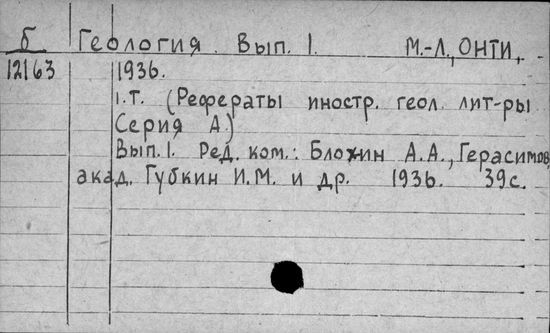 б Геология. Вып. 1. М.-Л., ОНТИ,
12163 1936.
1.т. (Рефераты иностр. геол. лит-ры
Серия А.)
Вып.1. Ред. ком.: Блохин А.А., Герасимов,
акад. Губкин И.М. и др. 1936. 39с.